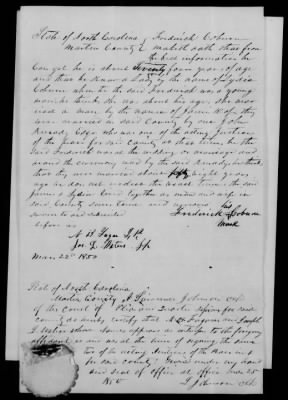 State of North Carolina } Frederick Coburn
Martin County } maketh oath that from
the best information he
Can get he is about Seventy four years of age
and that he knew a Lady by the name of Lydia
Coburn when he the said Frederick was a young
man he thinks she was about his age, she mar
ried a man by the name of James
were married in said County by one of John
Kennedy Esqr who was one of the acting Justices
of the peace for said County at that time he the
said Frederick was at the wedding or marriage and
heard the ceremony said by the said Kennedy
they were married about fifty eight years
ago he does not recollect the exact time the said
James & Lydia lived together as man and wife in
said County some time and
Sworn to and subscribed his
before us Frederick Coburn
mark
N. B. Fagan J.P.
Jos. D. Waters J.P.
Mar. 22d 1850
State of North Carolina
Martin County I, Lawrence Johnson clerk
of the court of Pleas and Quarter Sessions for said
county do hereby certify that N. B. Fagan and Joseph
D. Waters whose names appear as to the foregoing
affidavit are and were at the time of signing the same
two of the acting Justices of the Peace in and
for said county. Given under my hand
and seal of office at office Mar 25
1850 L. Johnson Clk